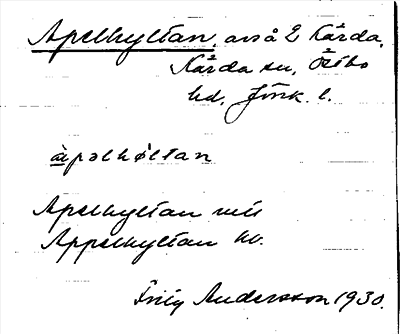 Apelhyltan, avs å 2 Kärda,
Kärda sn, Östbo
hd, Jönk. l.
àpəlhøltan
Apelhyltan
Appelhyltan
Andersson 1930.